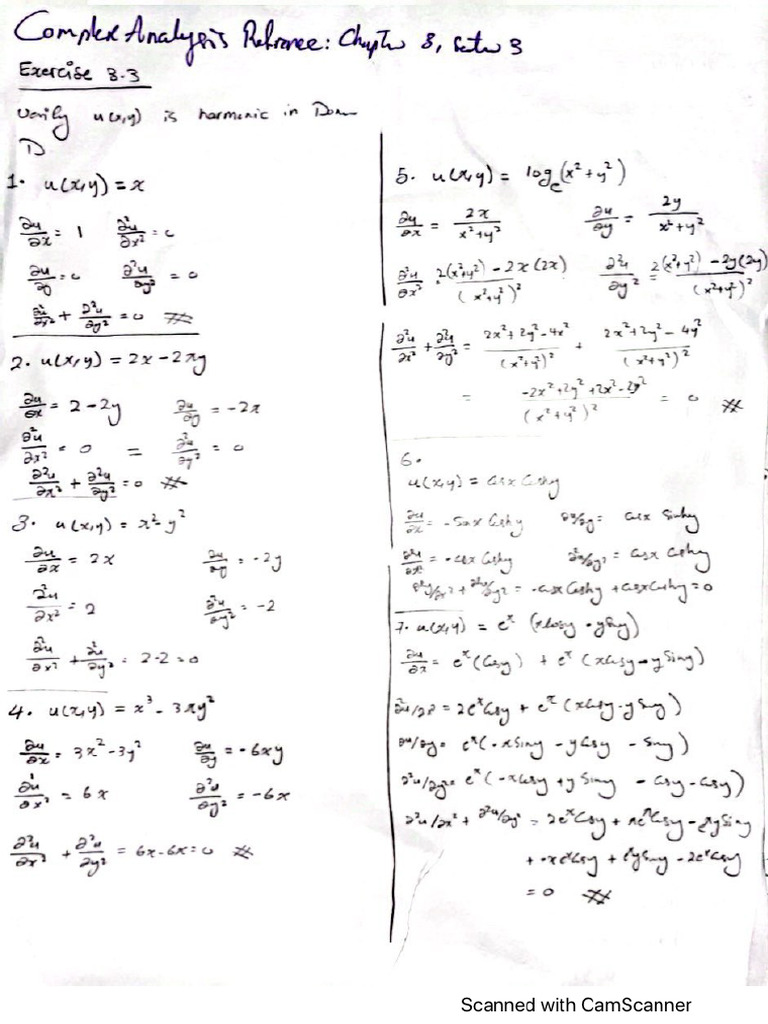 Complex Analysis Refrence: Chapter 3, Sectio 3
Exercise 3.3
Verify u(x,y) is harmonic in Dom
D
1. u(x,y) = x
∂u/∂x = 1 ∂²u/∂x² = 0
∂u/∂y = 0 ∂²u/∂y² = 0
∂²u/∂x² + ∂²u/∂y² = 0 #
2. u(x,y) = 2x - 2xy
∂u/∂x = 2 - 2y ∂u/∂y = -2x
∂²u/∂x² = 0 = ∂²u/∂y² = 0
∂²u/∂x² + ∂²u/∂y² = 0 #
3. u(x,y) = x² - y²
∂u/∂x = 2x ∂u/∂y = -2y
∂²u/∂x² = 2 ∂²u/∂y² = -2
∂²u/∂x² + ∂²u/∂y² = 2-2 = 0
4. u(x,y) = x³ - 3xy²
∂u/∂x = 3x² - 3y² ∂u/∂y = -6xy
∂²u/∂x² = 6x ∂²u/∂y² = -6x
∂²u/∂x² + ∂²u/∂y² = 6x - 6x = 0 #
5. u(x,y) = logₑ(x² + y²)
∂u/∂x = 2x/(x²+y²) ∂u/∂y = 2y/(x²+y²)
∂²u/∂x² = (2(x²+y²) - 2x(2x))/(x²+y²)² ∂²u/∂y² = (2(x²+y²) - 2y(2y))/(x²+y²)²
∂²u/∂x² + ∂²u/∂y² = (2x²+2y²-4x²)/(x²+y²)² + (2x²+2y²-4y²)/(x²+y²)²
= (-2x²+2y²+2x²-2y²)/(x²+y²)² = 0 #
6.
u(x,y) = cosx coshy
∂u/∂x = -sinx coshy ∂u/∂y = cosx sinhy
∂²u/∂x² = -cosx coshy ∂²u/∂y² = cosx coshy
∂²u/∂x² + ∂²u/∂y² = -cosx coshy + cosx coshy = 0
7. u(x,y) = eˣ (xcosy - ysiny)
∂u/∂x = eˣ(cosy) + eˣ (xcosy - ysiny)
∂²u/∂x² = 2eˣcosy + eˣ (xcosy - ysiny)
∂u/∂y = eˣ(-xsiny - ycosy - siny)
∂²u/∂y² = eˣ(-xcosy + ysiny - cosy - cosy)
∂²u/∂x² + ∂²u/∂y² = 2eˣcosy + xeˣcosy - eˣysiny
+ -xeˣcosy + eˣysiny - 2eˣcosy
= 0 #
Scanned with CamScanner